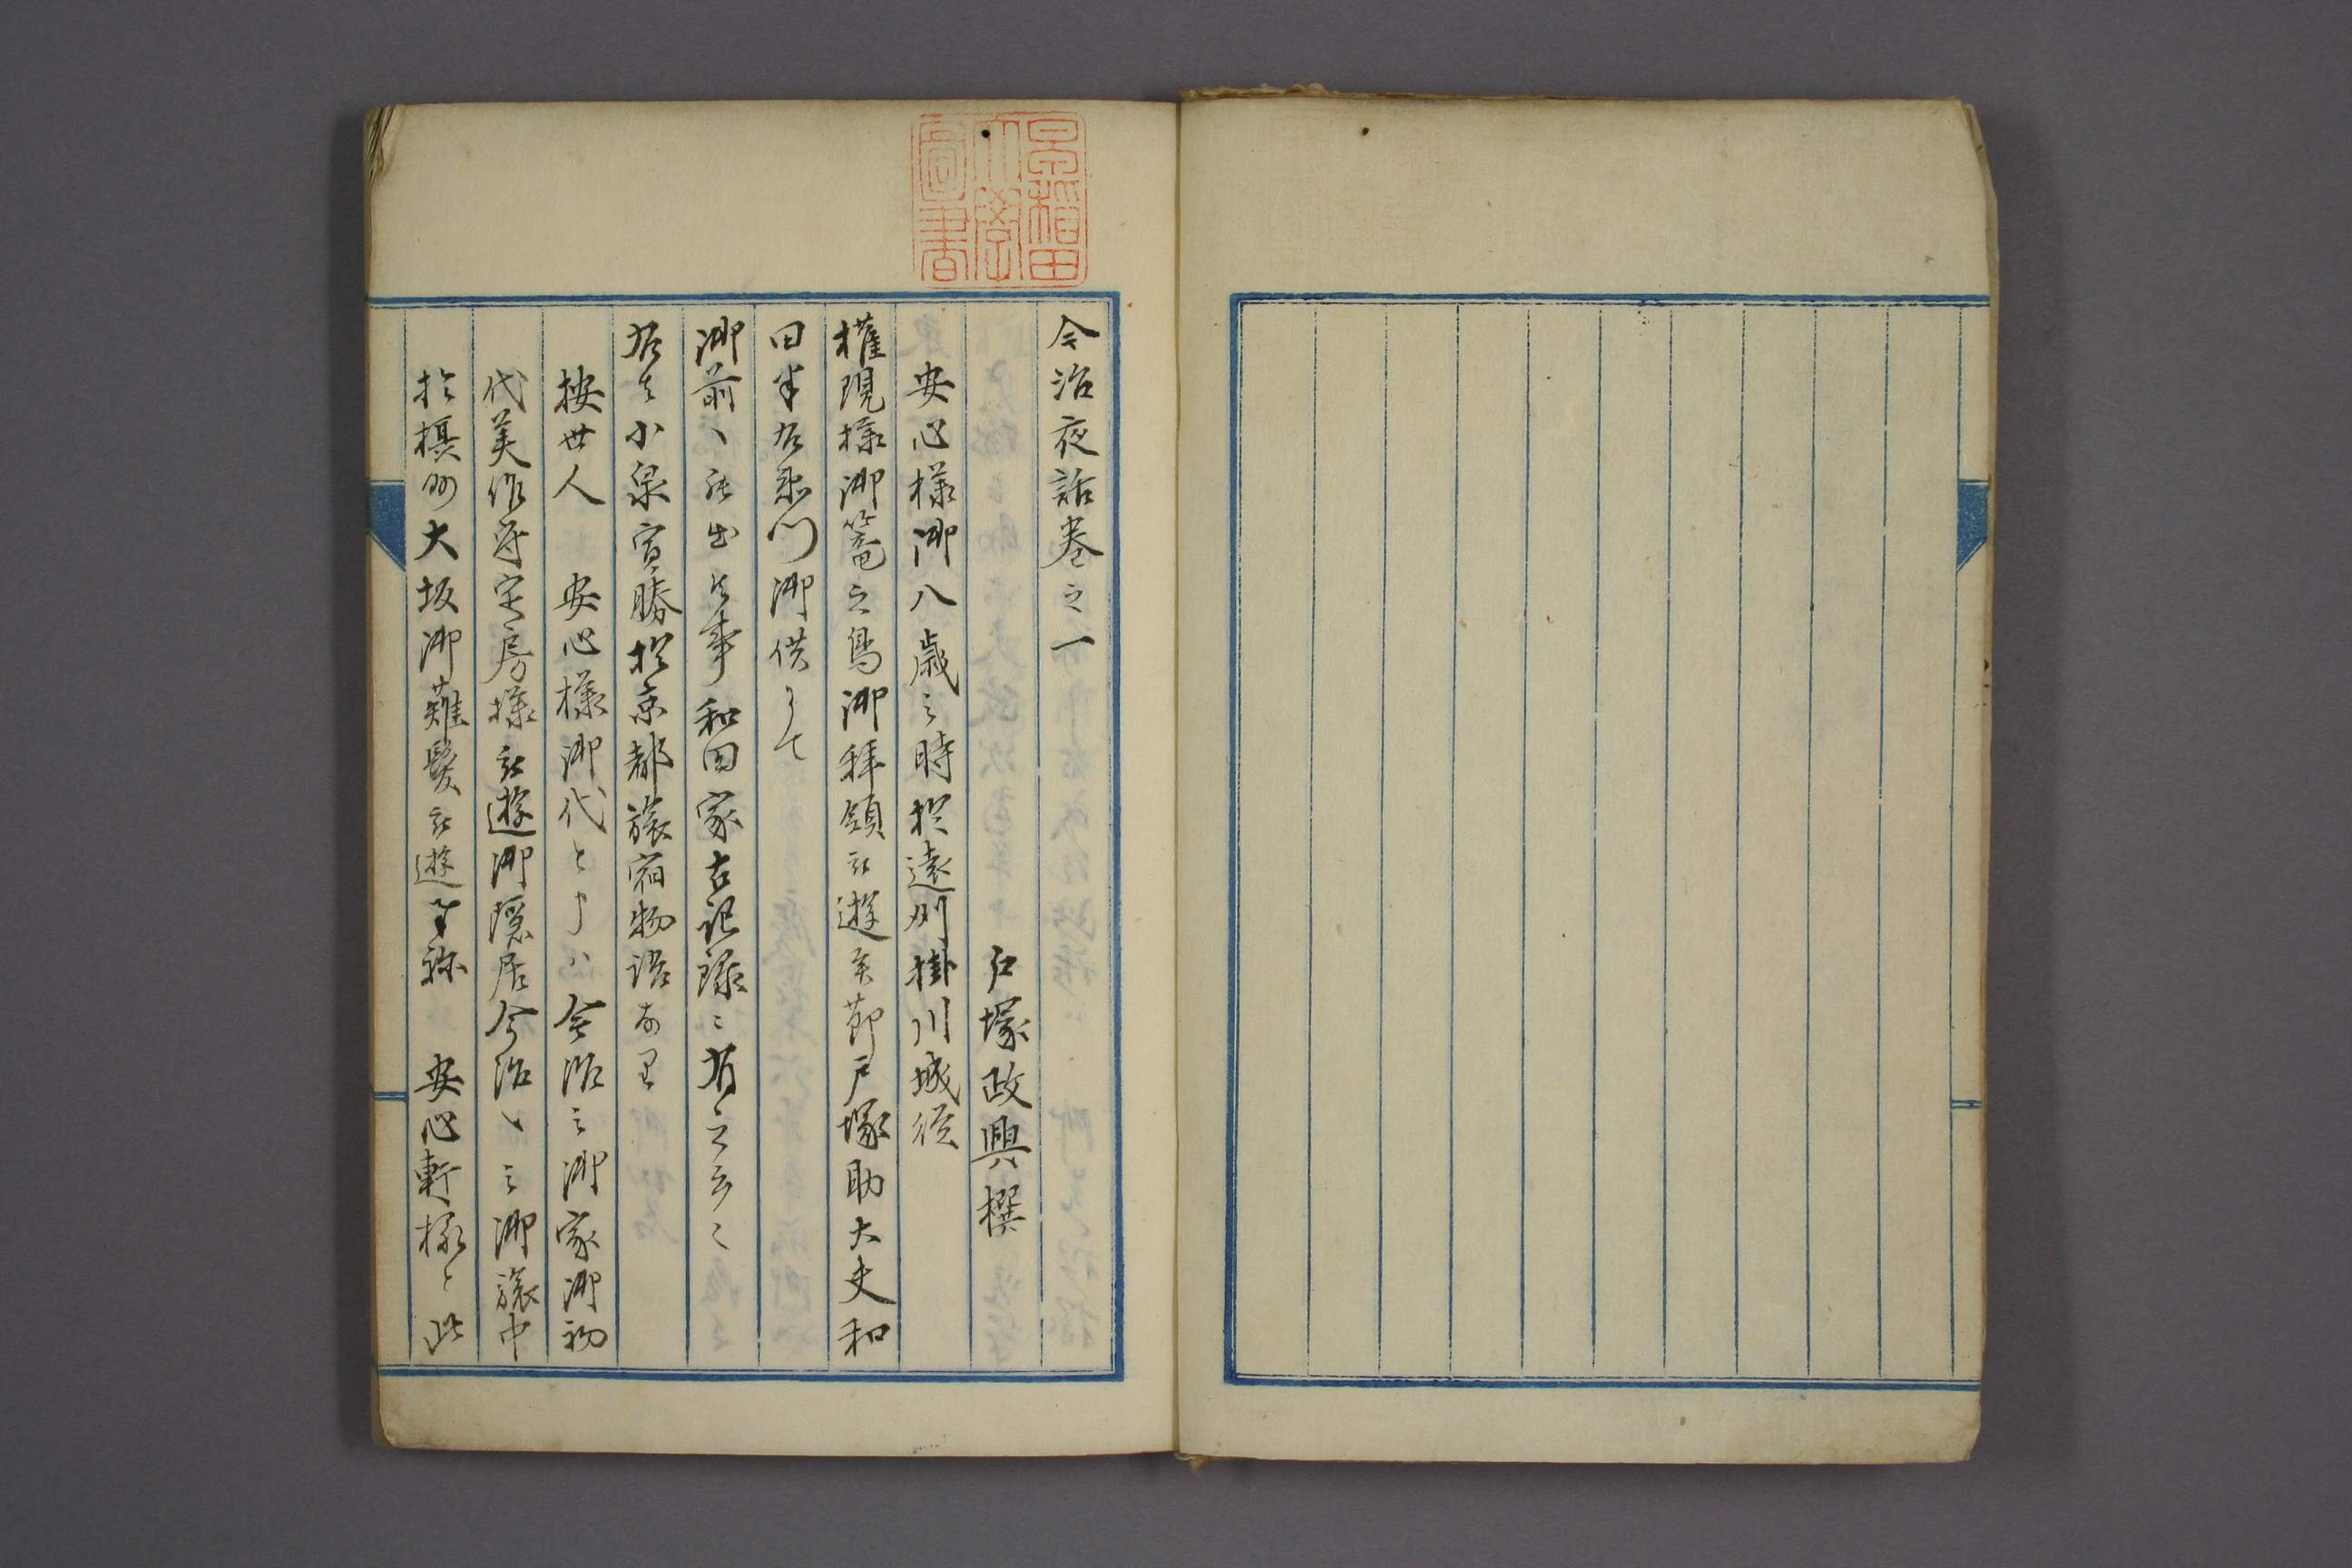 今治夜話巻之一
戸塚政興撰
安心様御八歳之時於遠州掛川城従
権現様御篭之鳥御拝領被遊候節戸塚助大夫和
田半右衛門御供ニて
御前へ罷出候事和田家古記録ニ有之云々
右は小泉宣勝於京都旅宿物語なり
按世人 安心様御代と申ハ今治之御家御初
代美作守定房様被遊御隠居今治へ之御旅中
於摂州大坂御薙髪被遊奉称 安心軒様と此
早稲田大学図書